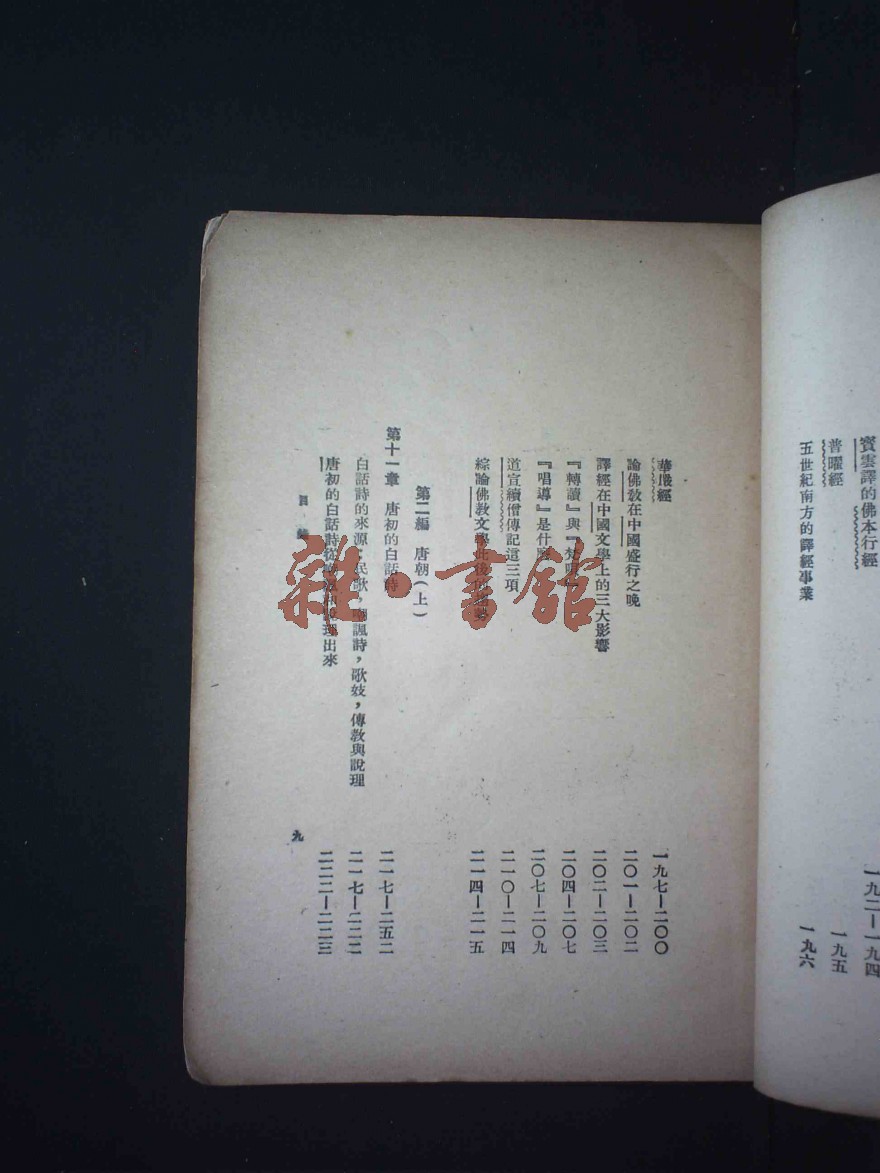 寶雲譯的佛本行經 一九二—一九四
普曜經 一九五
五世紀南方的譯經事業 一九六
華嚴經 一九七—二〇〇
論佛教在中國盛行之晚 二〇一—二〇二
譯經在中國文學上的三大影響 二〇二—二〇三
『轉讀』與『梵唄』 二〇四—二〇七
『唱導』是什麼 二〇七—二〇九
道宣續僧傳記這三項 二一〇—二一四
綜論佛教文學此後的 二一四—二一五
第二編 唐朝(上)
第十一章 唐初的白話詩 二一七—二五二
白話詩的來源,民歌,嘲諷詩,歌妓,傳教與說理 二一七—二二二
唐初的白話詩從嘲 說理出來 二二二—二二三
目錄
九
雜·書館